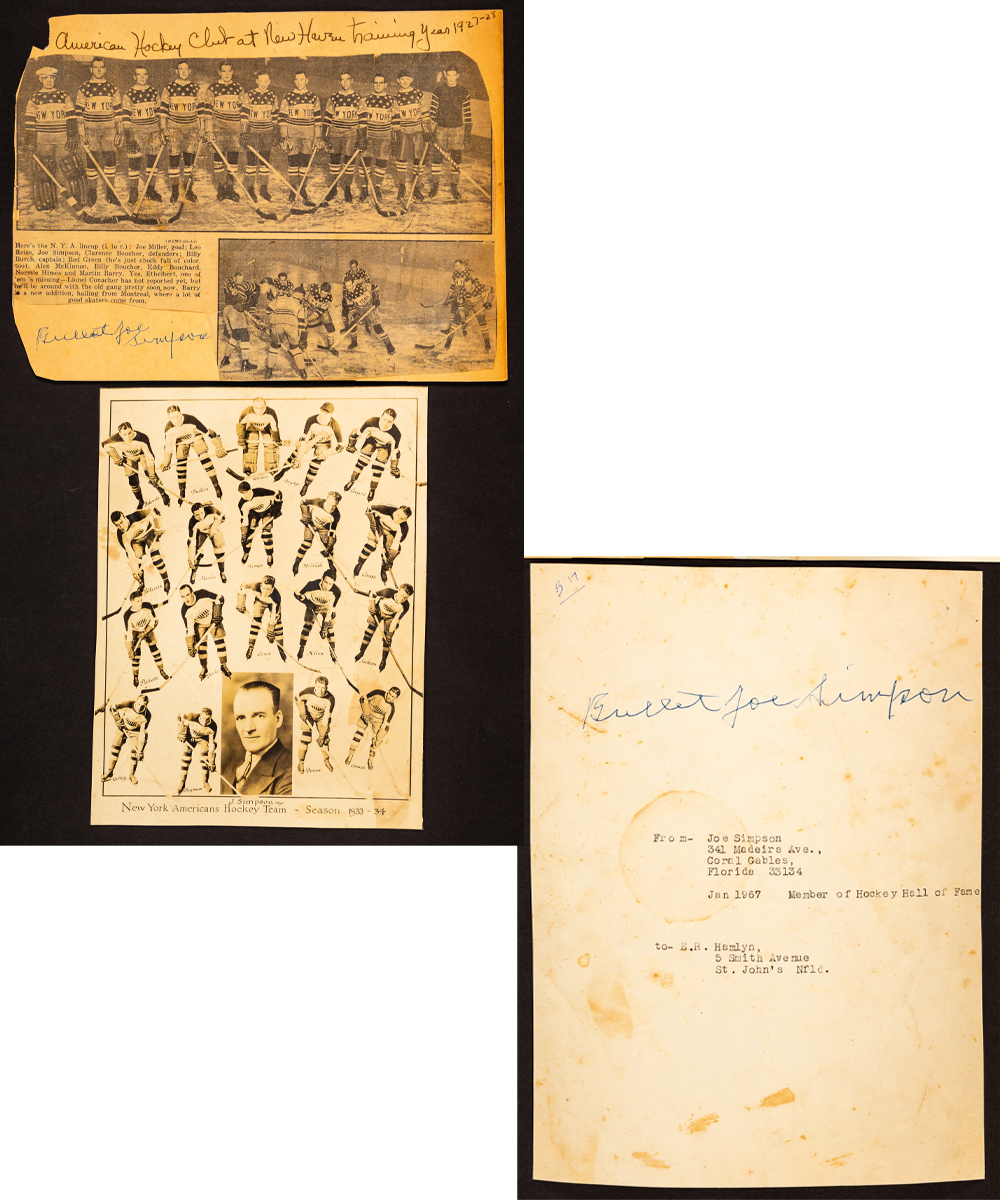 American Hockey Club at New Haven training year 1927-28
NEW YORK
Here's the N. Y. A. lineup (l. to r.): Joe Miller, goal; Leo
Reise, Joe Simpson, Clarence Boucher, defenders; Billy
Burch, captain; Red Green (he's just chock full of color,
too), Alex McKinnon, Billy Boucher, Eddy Bouchard,
Normie Himes and Martin Barry. Yes, Ethelbert, one of
'em's missing—Lionel Conacher has not reported yet, but
he'll be around with the old gang pretty soon now. Barry
is a new addition, hailing from Montreal, where a lot of
good skaters come from.
Bullet Joe
Simpson
J. Simpson
New York Americans Hockey Team - Season 1933-34
5 17
Bullet Joe Simpson
From- Joe Simpson
341 Madeira Ave.,
Coral Gables,
Florida 33134
Jan 1967 Member of Hockey Hall of Fame
to- E.R. Hamlyn,
5 Smith Avenue
St. John's Nfld.